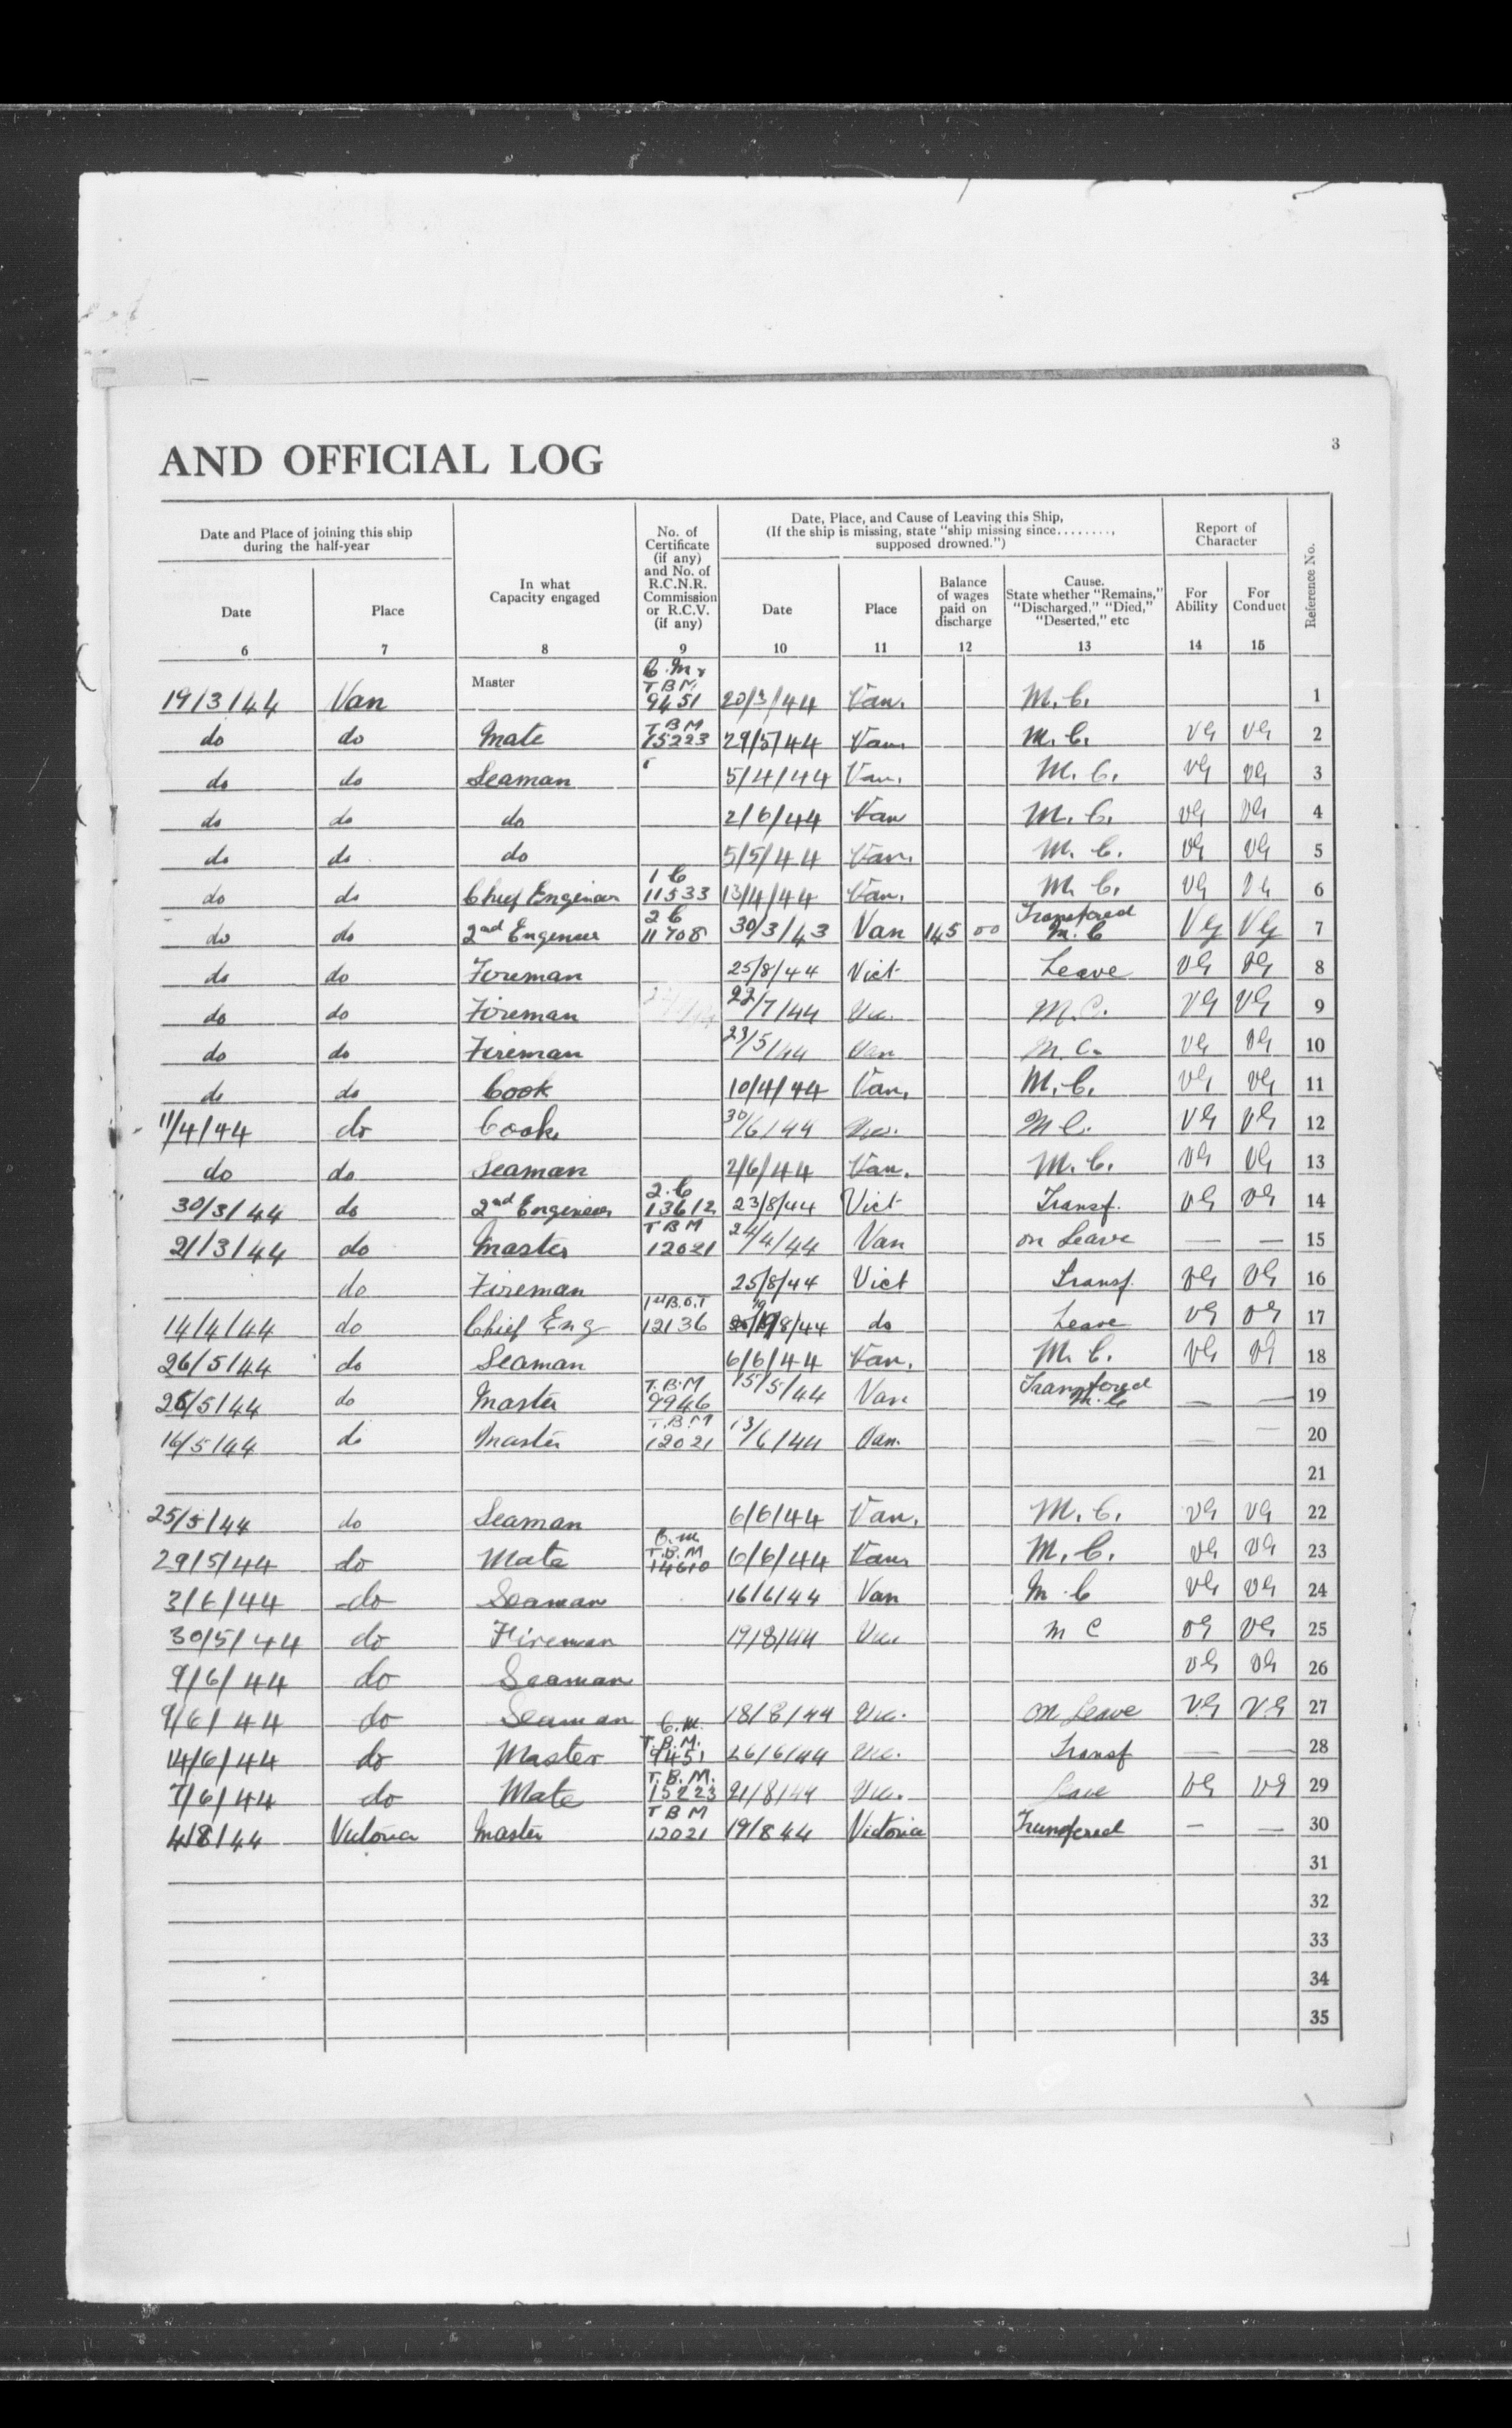 3
AND OFFICIAL LOG
Date and Place of joining this ship
during the half-year
Date
6
Place
7
In what
Capacity engaged
8
No. of
Certificate
(if any)
and No. of
R.C.N.R.
Commission
or R.C.V.
(if any)
9
Date, Place, and Cause of Leaving this Ship,
(If the ship is missing, state "ship missing since........,
supposed drowned.")
Date
10
Place
11
Balance
of wages
paid on
discharge
12
Cause.
State whether "Remains,"
"Discharged," "Died,"
"Deserted," etc
13
Report of
Character
For
Ability
14
For
Conduct
15
Reference No.
19/3/44 Van Master C.M. T B M 9451 20/3/44 Van. M.C. 1
do do Mate T B M 15223 29/5/44 Van. M.C. VG VG 2
do do Seaman 5/4/44 Van. M.C. VG VG 3
do do do 2/6/44 Van M.C. VG VG 4
do do do 5/5/44 Van. M.C. VG VG 5
do do Chief Engineer 1 C 11533 13/4/44 Van. M.C. VG VG 6
do do 2nd Engineer 2 C 11708 30/3/43 Van 145 00 Transfered M.C VG VG 7
do do Fireman 25/8/44 Vict Leave VG VG 8
do do Fireman 22/7/44 Vic. M.C. VG VG 9
do do Fireman 23/5/44 Van M.C. VG VG 10
do do Cook 10/4/44 Van. M.C. VG VG 11
11/4/44 do Cook 30/6/44 M C. VG VG 12
do do Seaman 2/6/44 Van. M.C. VG VG 13
30/3/44 do 2nd Engineer 2.C 13612 23/8/44 Vict Transf. VG VG 14
21/3/44 do Master T B M 12021 24/4/44 Van on Leave — — 15
do Fireman 25/8/44 Vict Transf. VG VG 16
14/4/44 do Chief Eng 1st B.O.T 12136 19/8/44 do Leave VG VG 17
26/5/44 do Seaman 6/6/44 Van. M.C. VG VG 18
25/5/44 do Master T.B.M 9946 15/5/44 Van Transfered M.C — — 19
16/5/44 do Master T.B.M 12021 13/6/44 Van. — — 20
21
25/5/44 do Seaman 6/6/44 Van. M.C. VG VG 22
29/5/44 do Mate C.M. T.B.M 14610 6/6/44 Van. M.C. VG VG 23
3/6/44 do Seaman 16/6/44 Van M.C VG VG 24
30/5/44 do Fireman 19/8/44 Vic M C VG VG 25
9/6/44 do Seaman VG VG 26
9/6/44 do Seaman 18/8/44 Vic. on Leave VG VG 27
14/6/44 do Master C.M. T.B.M. 9451 26/6/44 Vic. Transf — — 28
7/6/44 do Mate T.B.M. 15223 21/8/44 Vic. Leave VG VG 29
4/8/44 Victoria Master T B M 12021 19/8 44 Victoria Transfered — — 30
31
32
33
34
35